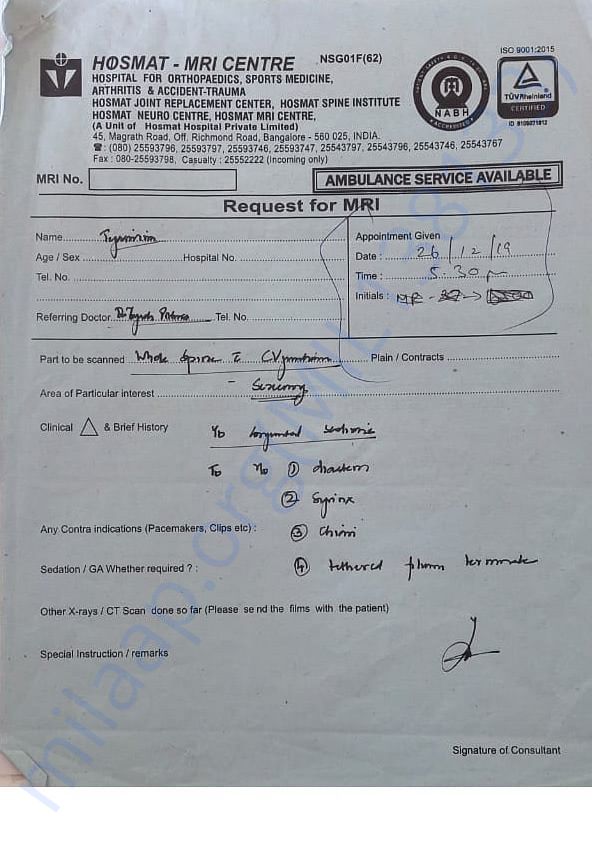 HOSMAT - MRI CENTRE NSG01F(62)
HOSPITAL FOR ORTHOPAEDICS, SPORTS MEDICINE,
ARTHRITIS & ACCIDENT-TRAUMA
HOSMAT JOINT REPLACEMENT CENTER, HOSMAT SPINE INSTITUTE
HOSMAT NEURO CENTRE, HOSMAT MRI CENTRE,
(A Unit of Hosmat Hospital Private Limited)
45, Magrath Road, Off. Richmond Road, Bangalore - 560 025, INDIA.
☎: (080) 25593796, 25593797, 25593746, 25593747, 25543797, 25543796, 25543746, 25543767
Fax : 080-25593798, Casualty : 25552222 (Incoming only)
NABH
ACCREDITED
ISO 9001:2015
TÜVRheinland
CERTIFIED
ID 9105071812
MRI No.
AMBULANCE SERVICE AVAILABLE
Request for MRI
Name
Age / Sex Hospital No.
Tel. No.
Referring Doctor. Dr Tel. No.
Appointment Given
Date : 26/12/19
Time : 5.30 pm
Initials :
Part to be scanned Whole Spine Plain / Contracts
Area of Particular interest - Screening
Clinical △ & Brief History
To ① 
② Syrinx
Any Contra indications (Pacemakers, Clips etc) : ③ Chiari
Sedation / GA Whether required ? : ④ tethered filum terminale
Other X-rays / CT Scan done so far (Please send the films with the patient)
Special Instruction / remarks
Signature of Consultant
milaap.org